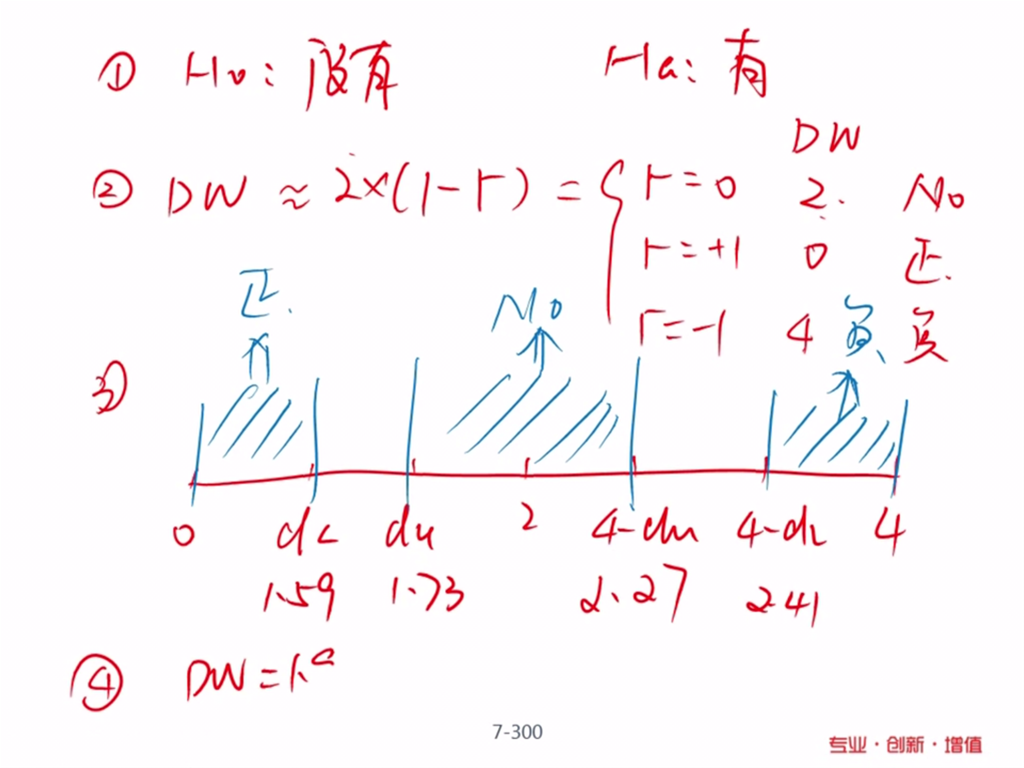 ① H0: 没有 Ha: 有
DW
② DW ≈ 2×(1-r) = { r=0 2. No
r=+1 0 正.
r=-1 4 负 负
正. No
③
0 dL du 2 4-du 4-dL 4
1.59 1.73 2.27 2.41
④ DW=1.
7-300
专业·创新·增值